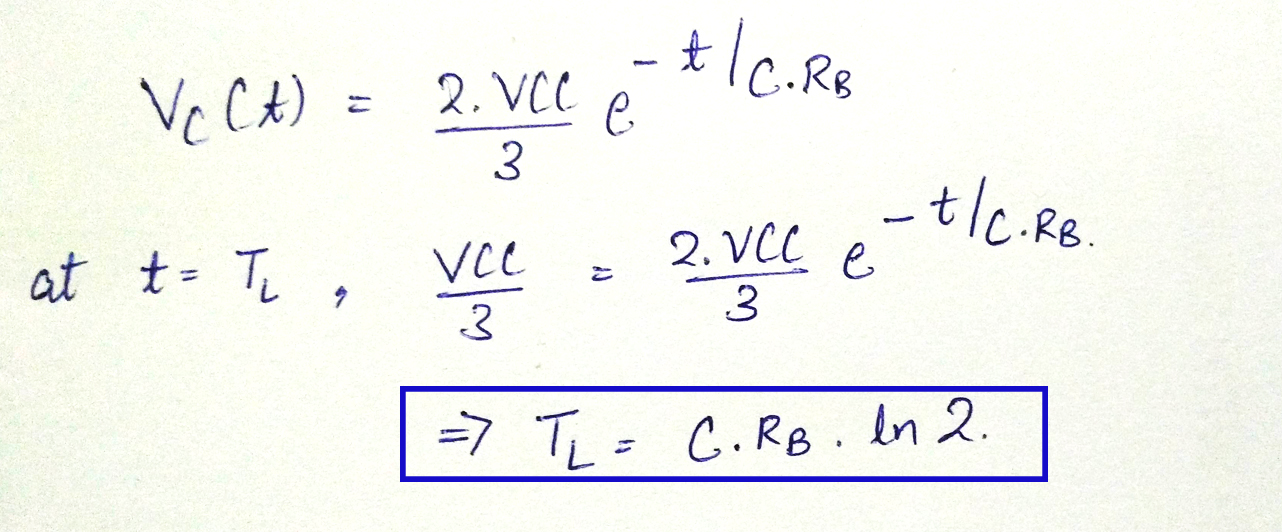 Vc(t) = 2.VCC/3 e^-t/C.RB
at t = TL, VCC/3 = 2.VCC/3 e^-t/C.RB.
=> TL = C.RB. ln 2.